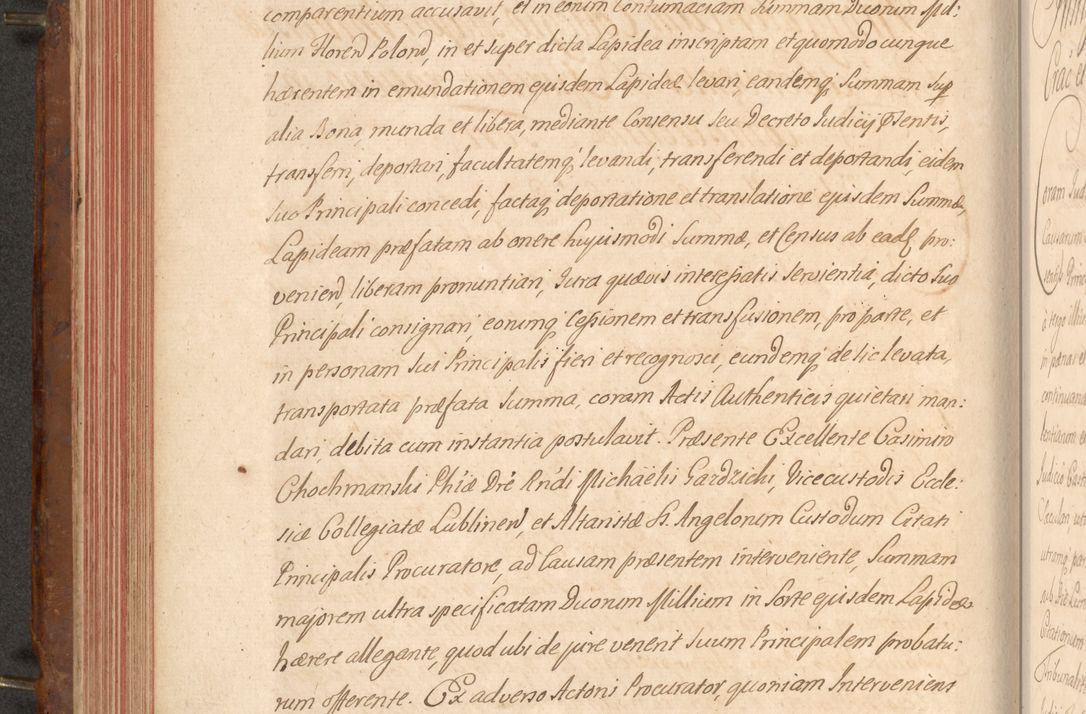 comparentium accusavit, et in eorum Contumaciam Summam Duorum Mil:
lium Floren Polon, in et super dicta Lapidea inscriptam et quomodocunque
hærentem in emundationem ejusdem Lapideæ levari, eandemq; Summam sup
alia Bona, munda et libera, mediante Consensu seu Decreto Iudicij Psentis,
transferri, deportari, facultatemq; levandi, transferendi et deportandi, eidem
suo Principali concedi, factaq; deportatione et translatione ejusdem Summæ,
Lapideam præfatam ab onere hujusmodi Summæ, et Census ab eade pro:
venien liberam pronuntiari, Iura quævis interessatis servientia, dicto Suo
Principali consignari, eorumq; Cessionem et transfusionem, pro parte, et
in personam sui Principalis fieri et recognosci, eundemq; de sic levata,
transportata præfata Summa, coram Actis Authenticis quietari man:
dari, debita cum instantia postulavit. Præsente Excellente Casimiro
Chochmanski Phiæ Dre Rndi Michaëlis Gardzichi, Vicecustodis Eccle:
siæ Collegiatæ Lublinen, et Altaristæ SS. Angelorum Custodum Citati
Principalis Procuratore, ad Causam præsentem interveniente, Summam
majorem ultra specificatam Duorum Millium in Sorte ejusdem Lapideæ
hærere allegante, quod ubi de jure venerit suum Principalem probatu:
rum offerente. Ex adverso Actoris Procurator, quoniam Interveniens